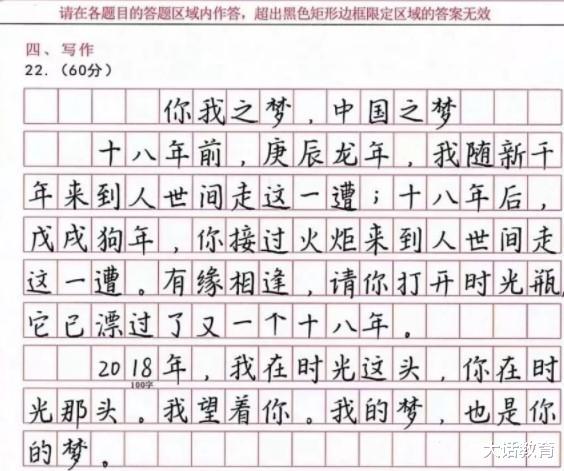 请在各题目的答题区域内作答，超出黑色矩形边框限定区域的答案无效
四、写作
22.（60分）
你我之梦，中国之梦
十八年前，庚辰龙年，我随新千
年来到人世间走这一遭；十八年后，
戊戌狗年，你接过火炬来到人世间走
这一遭。有缘相逢，请你打开时光瓶，
它已漂过了又一个十八年。
2018年，我在时光这头，你在时
100字
光那头。我望着你。我的梦，也是你
的梦。
大话教育